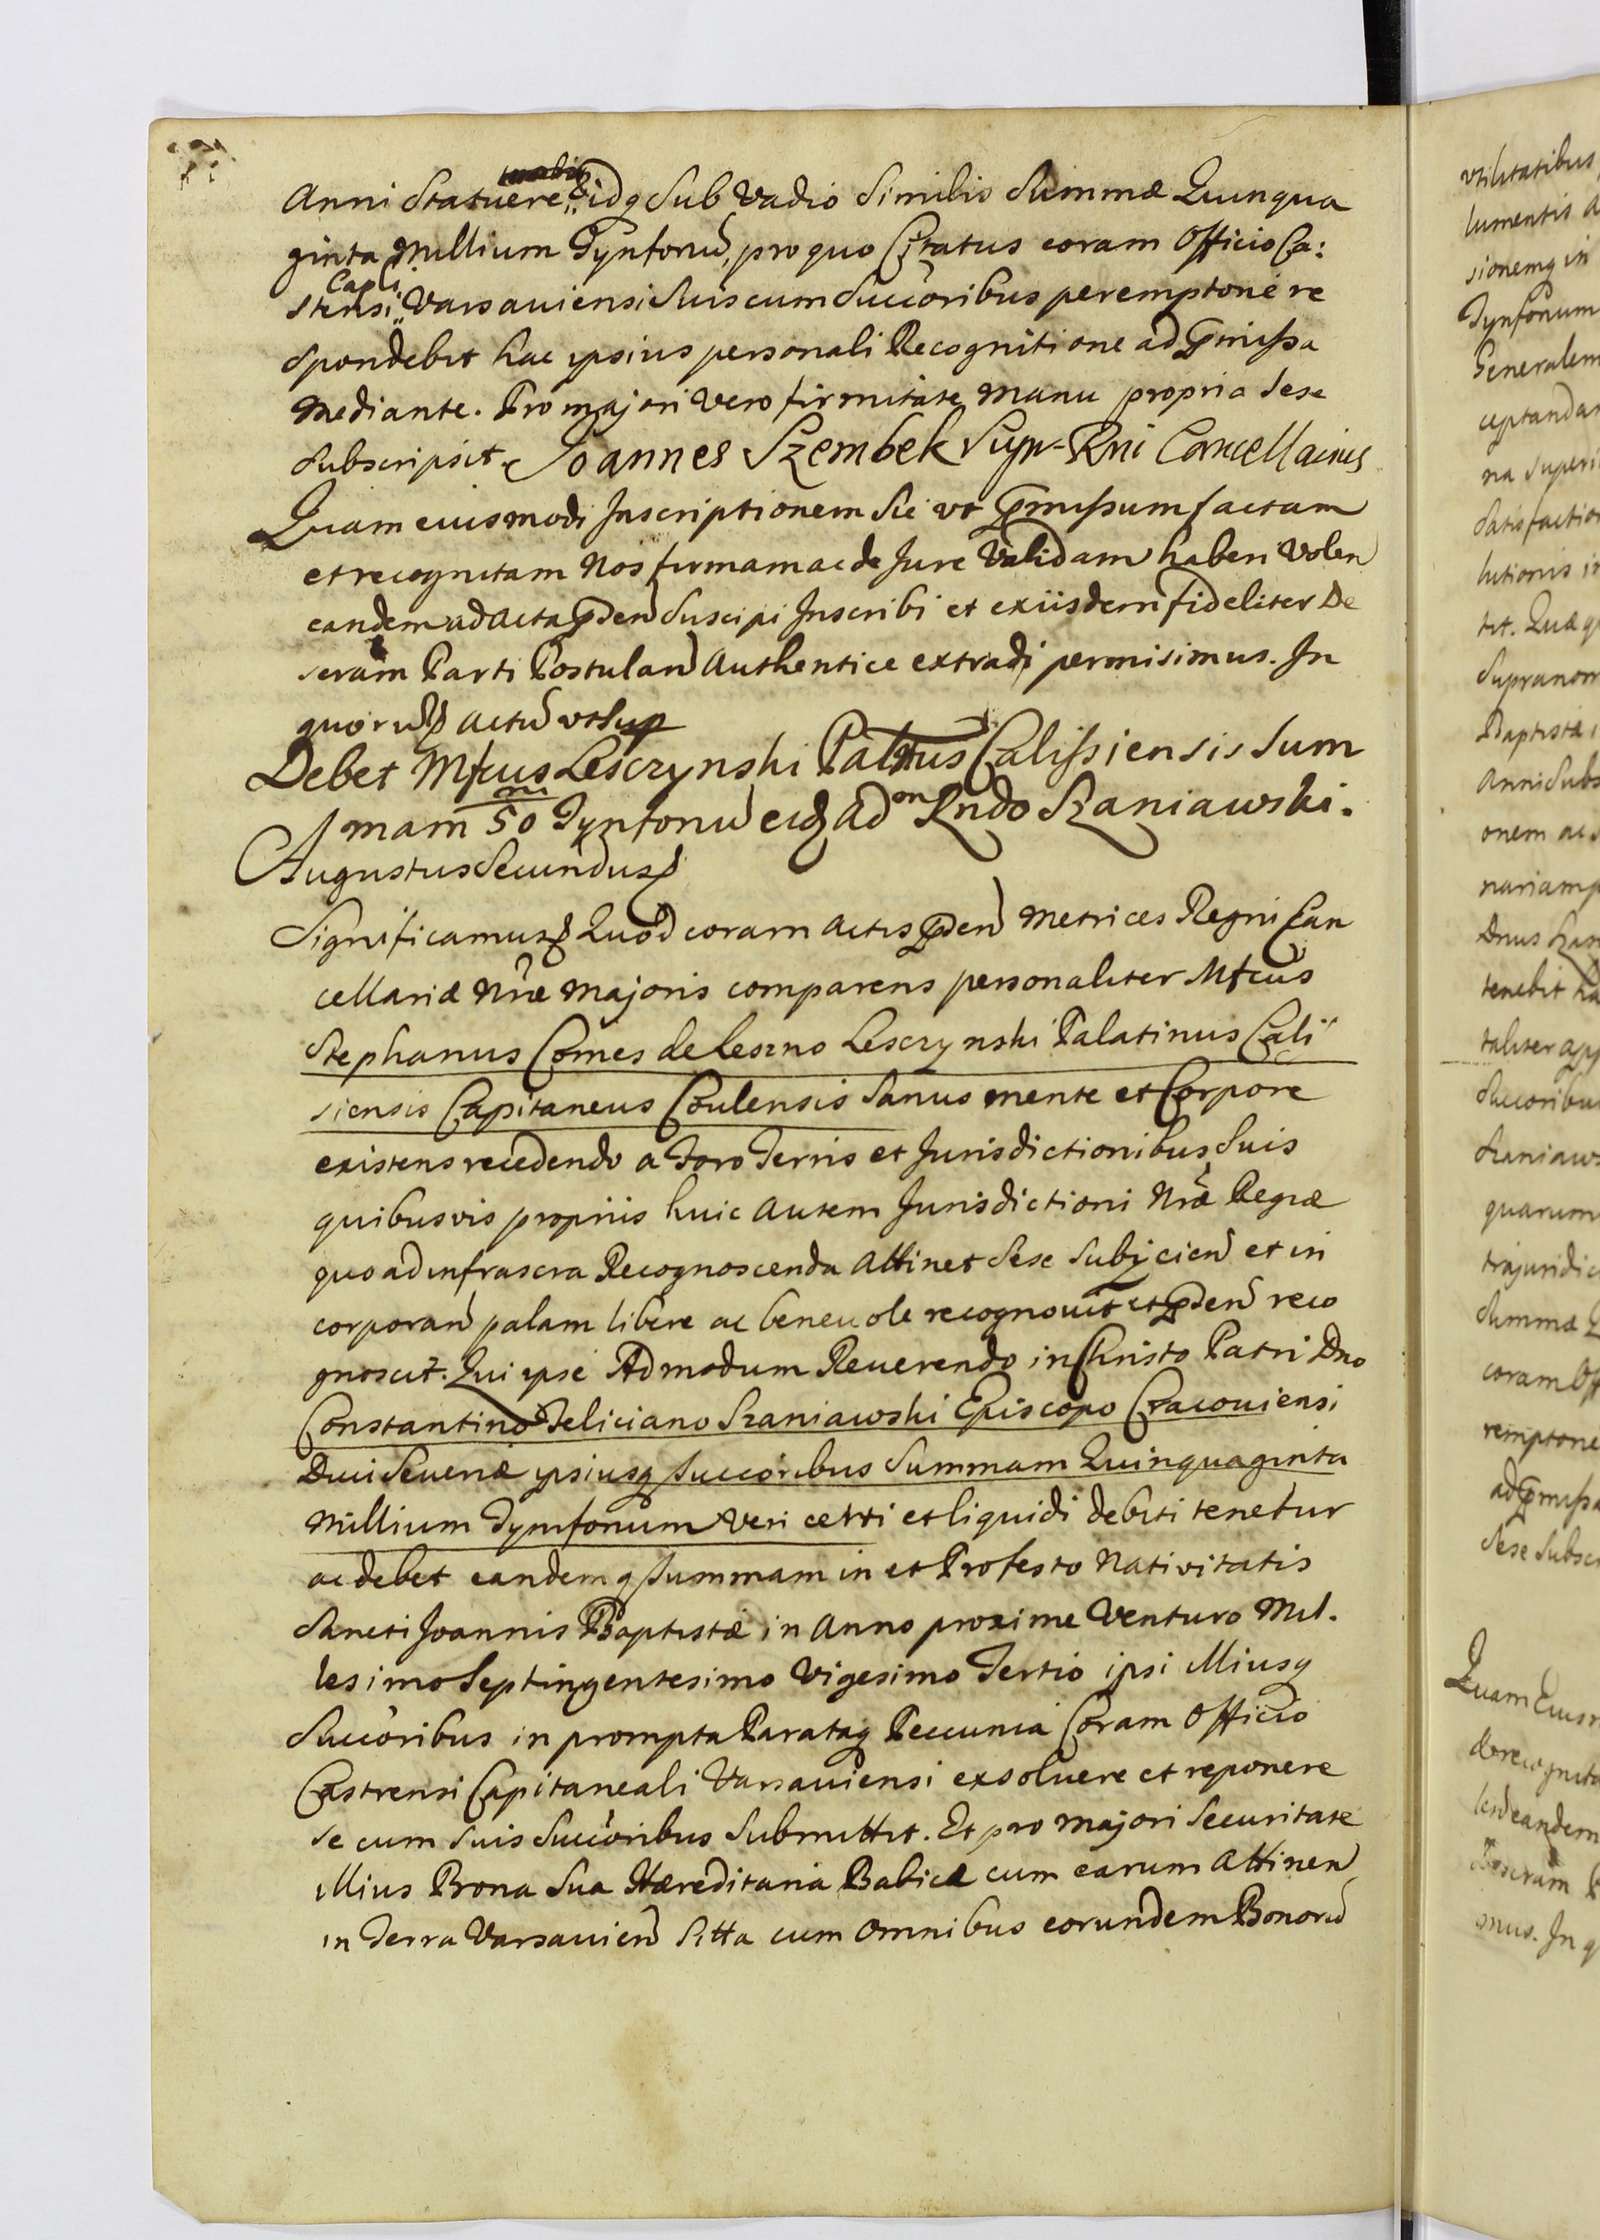 Anni Statuere idq Sub Vadio Similis Summæ Quinqua
ginta Millium Tynforu, pro quo Citatus coram Officio Ca:
Capli
strensi Varsauiensi Suis cum Succoribus peremptorie re
spondebit hac ipsius personali Recognitione ad Pmissa
Mediante. Pro majori vero firmitate Manu propria Sese
Subscripsit. Joannes Szembek Sup-Rni Cancellarius
Quam eiusmodi Inscriptionem Sic vt Pmissum factam
et recognitam Nos firmam ac de Jure Validam haberi Volen
eandem ad Acta Pden Suscipi Inscribi et exiisdem fideliter De
scram Parti Postulan Authentice extradi permisimus. In
quoru Actu vt Sup
Debet Mfcus Lesczynski Palnus Calissiensis Sum
mam 50 m Tynforu eidq Adon Rndo Szaniawski.
Augustus Secundus
Significamus Quod coram Actis Pden Metrices Regni Can
cellariæ Nræ Majoris comparens personaliter Mfcus
Stephanus Comes de Leszno Lesczynski Palatinus Cali
siensis Capitaneus Coulensis Sanus mente et Corpore
existens recedendo a Foro Terris et Jurisdictionibus Suis
quibusvis propriis huic Autem Jurisdictioni Nræ Regiæ
quo ad infrascra Recognoscenda Attinet Sese Subijcien et in
corporan palam libere ac beneuole recognouit et Pden reco
gnoscit. Qui ipse Admodum Reuerendo in Christo Patri Dno
Constantino Feliciano Szaniawski Episcopo Cracouiensi
Duci Seueriæ ipsiusq Succoribus Summam Quinquaginta
Millium Tymforum Veri certi et liquidi debiti tenetur
ac debet eandemq Summam in et Profesto Nativitatis
Sancti Joannis Baptistæ in Anno proxime Venturo Mil.
lesimo Septingentesimo Vigesimo Tertio ipsi Illiusq
Succoribus in prompta Parataq Peccunia Coram Officio
Castrensi Capitaneali Varsauiensi exsoluere et reponere
se cum suis Succoribus Submittit. Et pro majori Securitate
illius Bona Sua Hæreditaria Babice cum earum Attinen
in Terra Varsauien Sitta cum Omnibus eorundem Bonoru
vtilitatibus
Tynfonum
Generalem
Supranom
Baptistæ
Anni Subs
tenebit
taliter
Succoribus
quarum
Summæ
coram Off
Sese Subsc
eandem
mus. In q